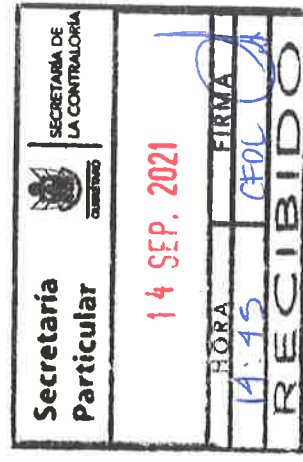 Secretaría
Particular
QUERÉTARO
SECRETARÍA DE
LA CONTRALORÍA
14 SEP. 2021
HORA
FIRMA
14:45
CFDC
RECIBIDO